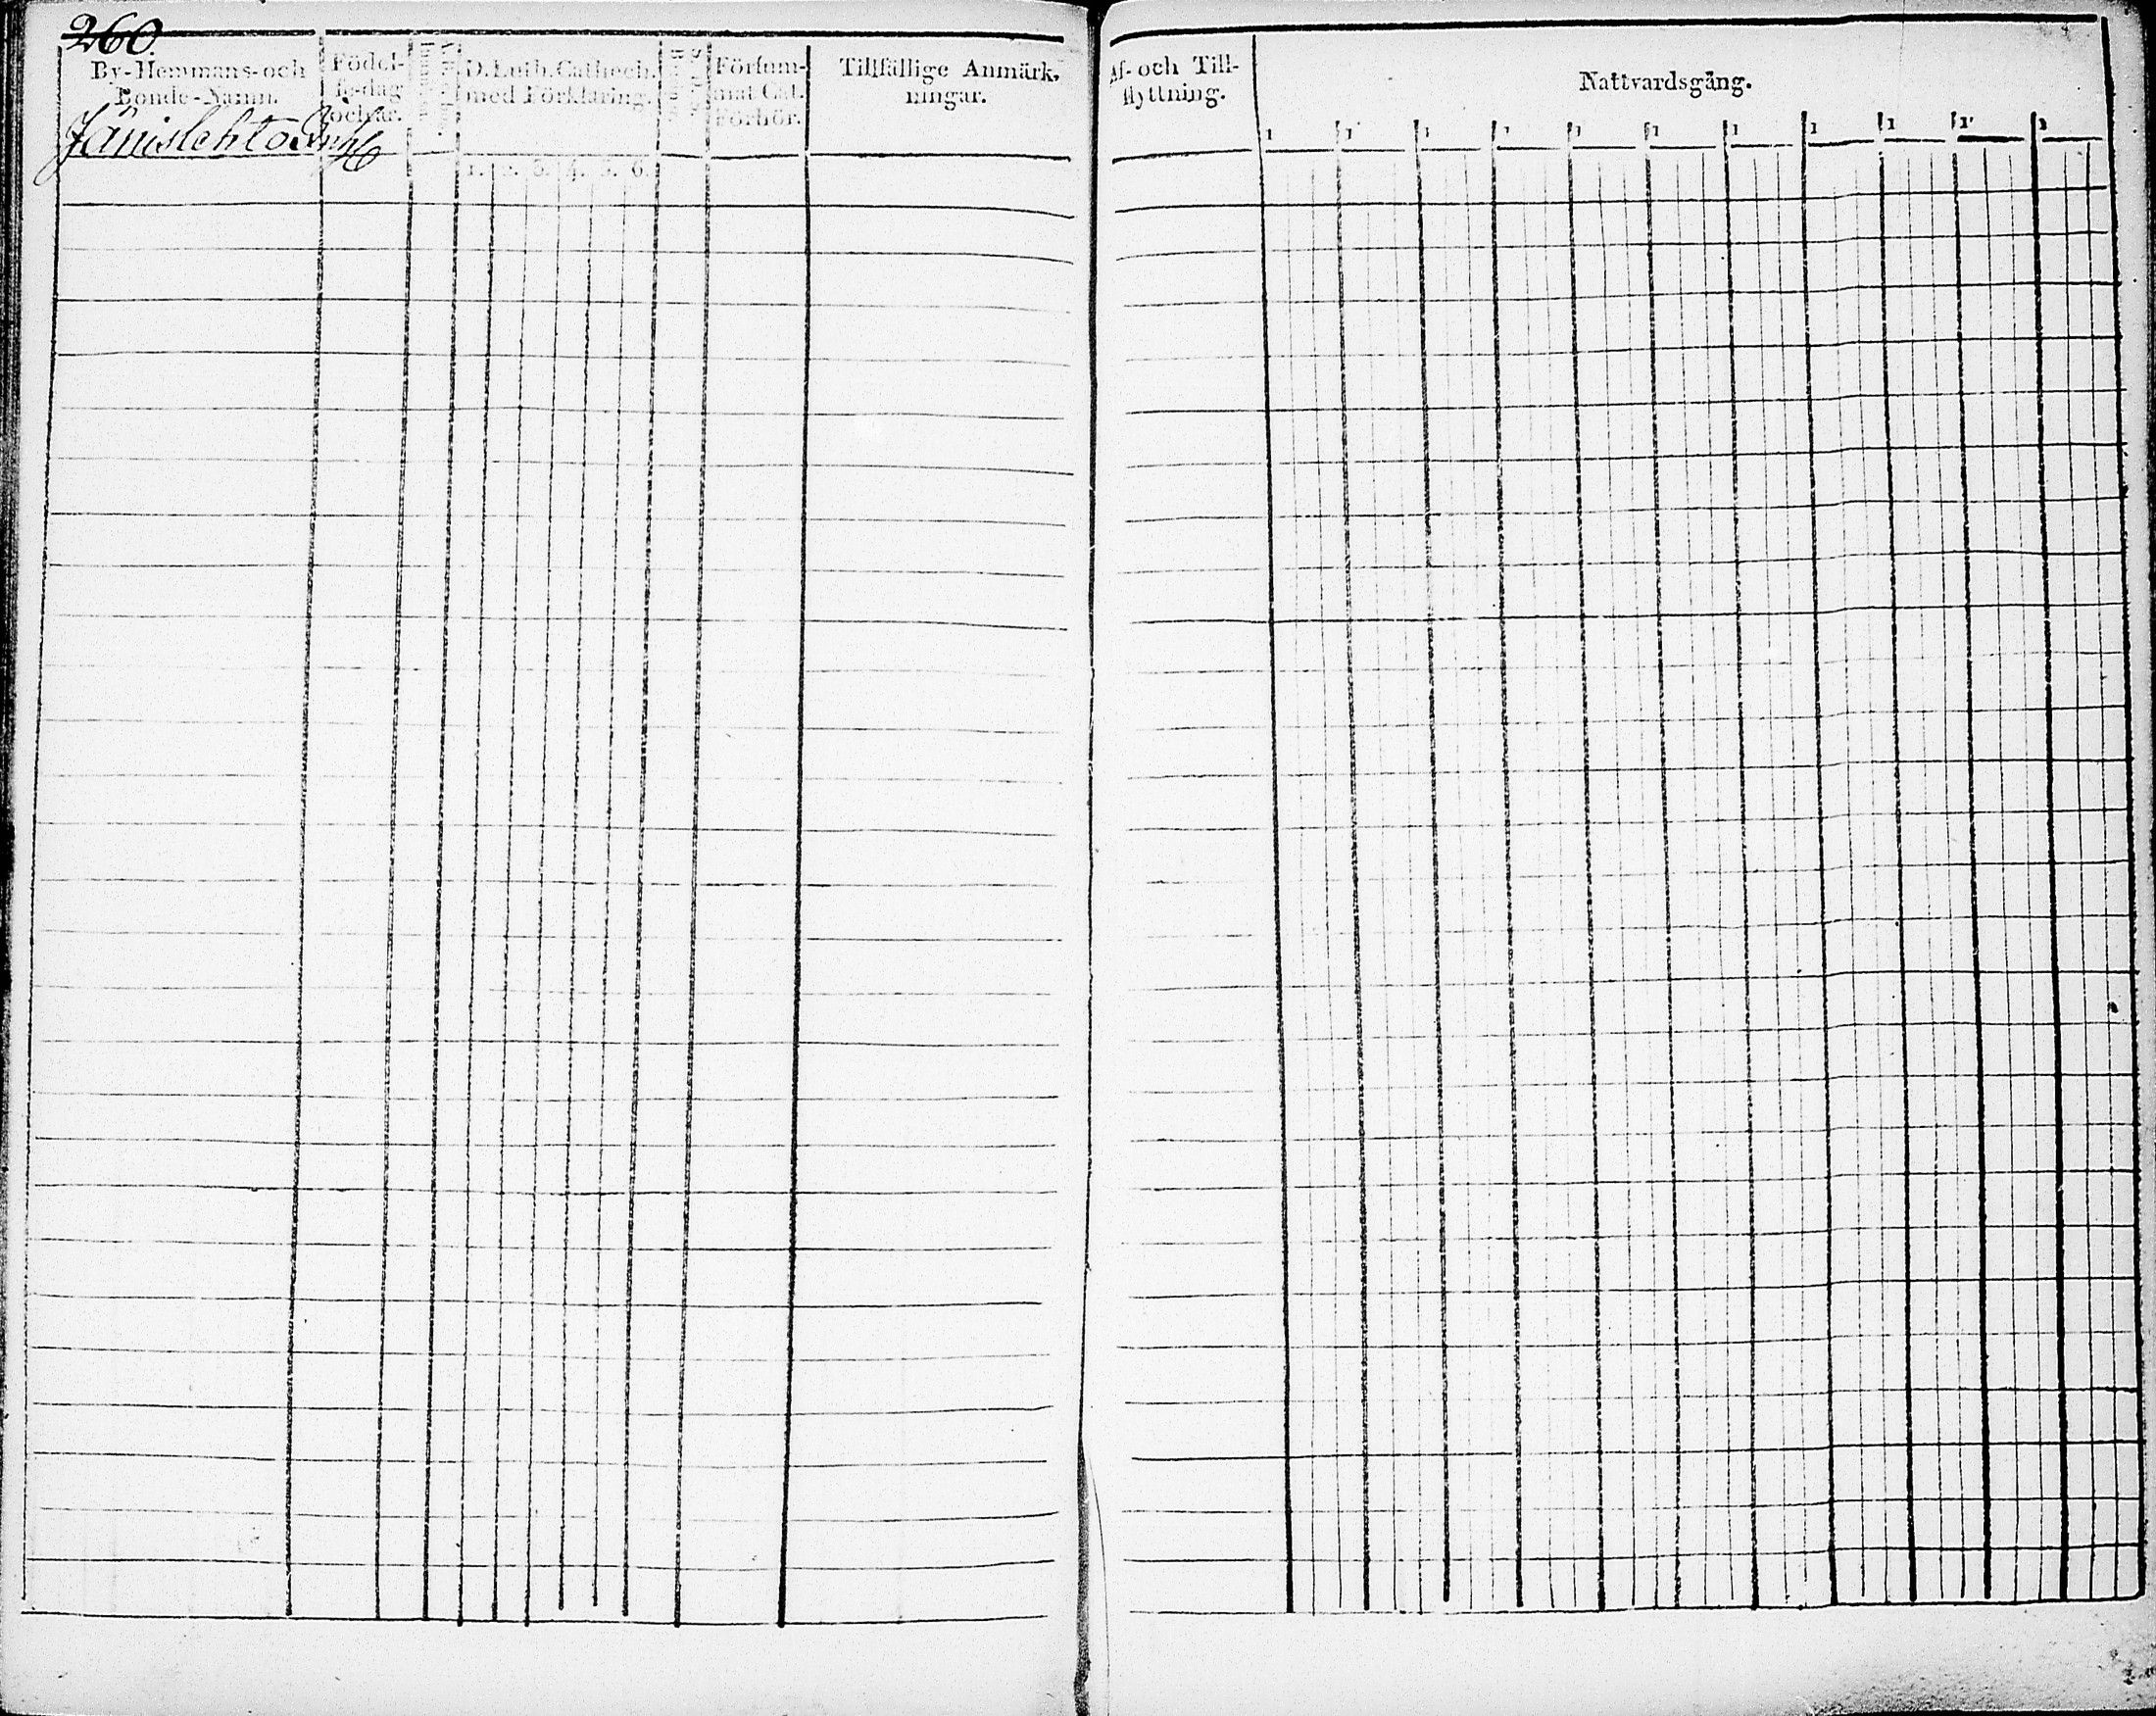 260
By-Hemmans-och
Bonde-Namn.
Födel-
se-dag
och år.
D. Luth. Cathech.
med Förklaring.
1. 2. 3. 4. 5. 6.
Försum-
mat Cat.
Förhör.
Tillfällige Anmärk-
ningar.
Jänislehto
Af- och Till-
flyttning.
Nattvardsgång.
1 1 1 1 1 1 1 1 1 1 1